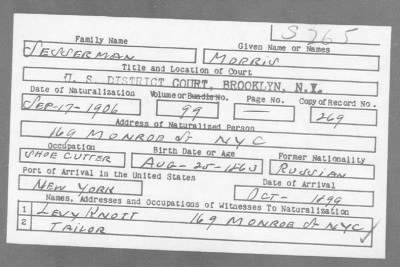 S265
Family Name Given Name or Names
SESSERMAN MORRIS
Title and Location of Court
U. S. DISTRICT COURT, BROOKLYN, N.Y.
Date of Naturalization Volume or Bundle No. Page No. Copy of Record No.
SEP-17-1906 99 — 269
Address of Naturalized Person
169 MONROE St NYC
Occupation Birth Date or Age Former Nationality
SHOE CUTTER AUG-25-1863 RUSSIAN
Port of Arrival in the United States Date of Arrival
NEW YORK OCT- 1899
Names, Addresses and Occupations of Witnesses To Naturalization
1 LEVY KNOTT 169 MONROE St NYC
2 TAILOR